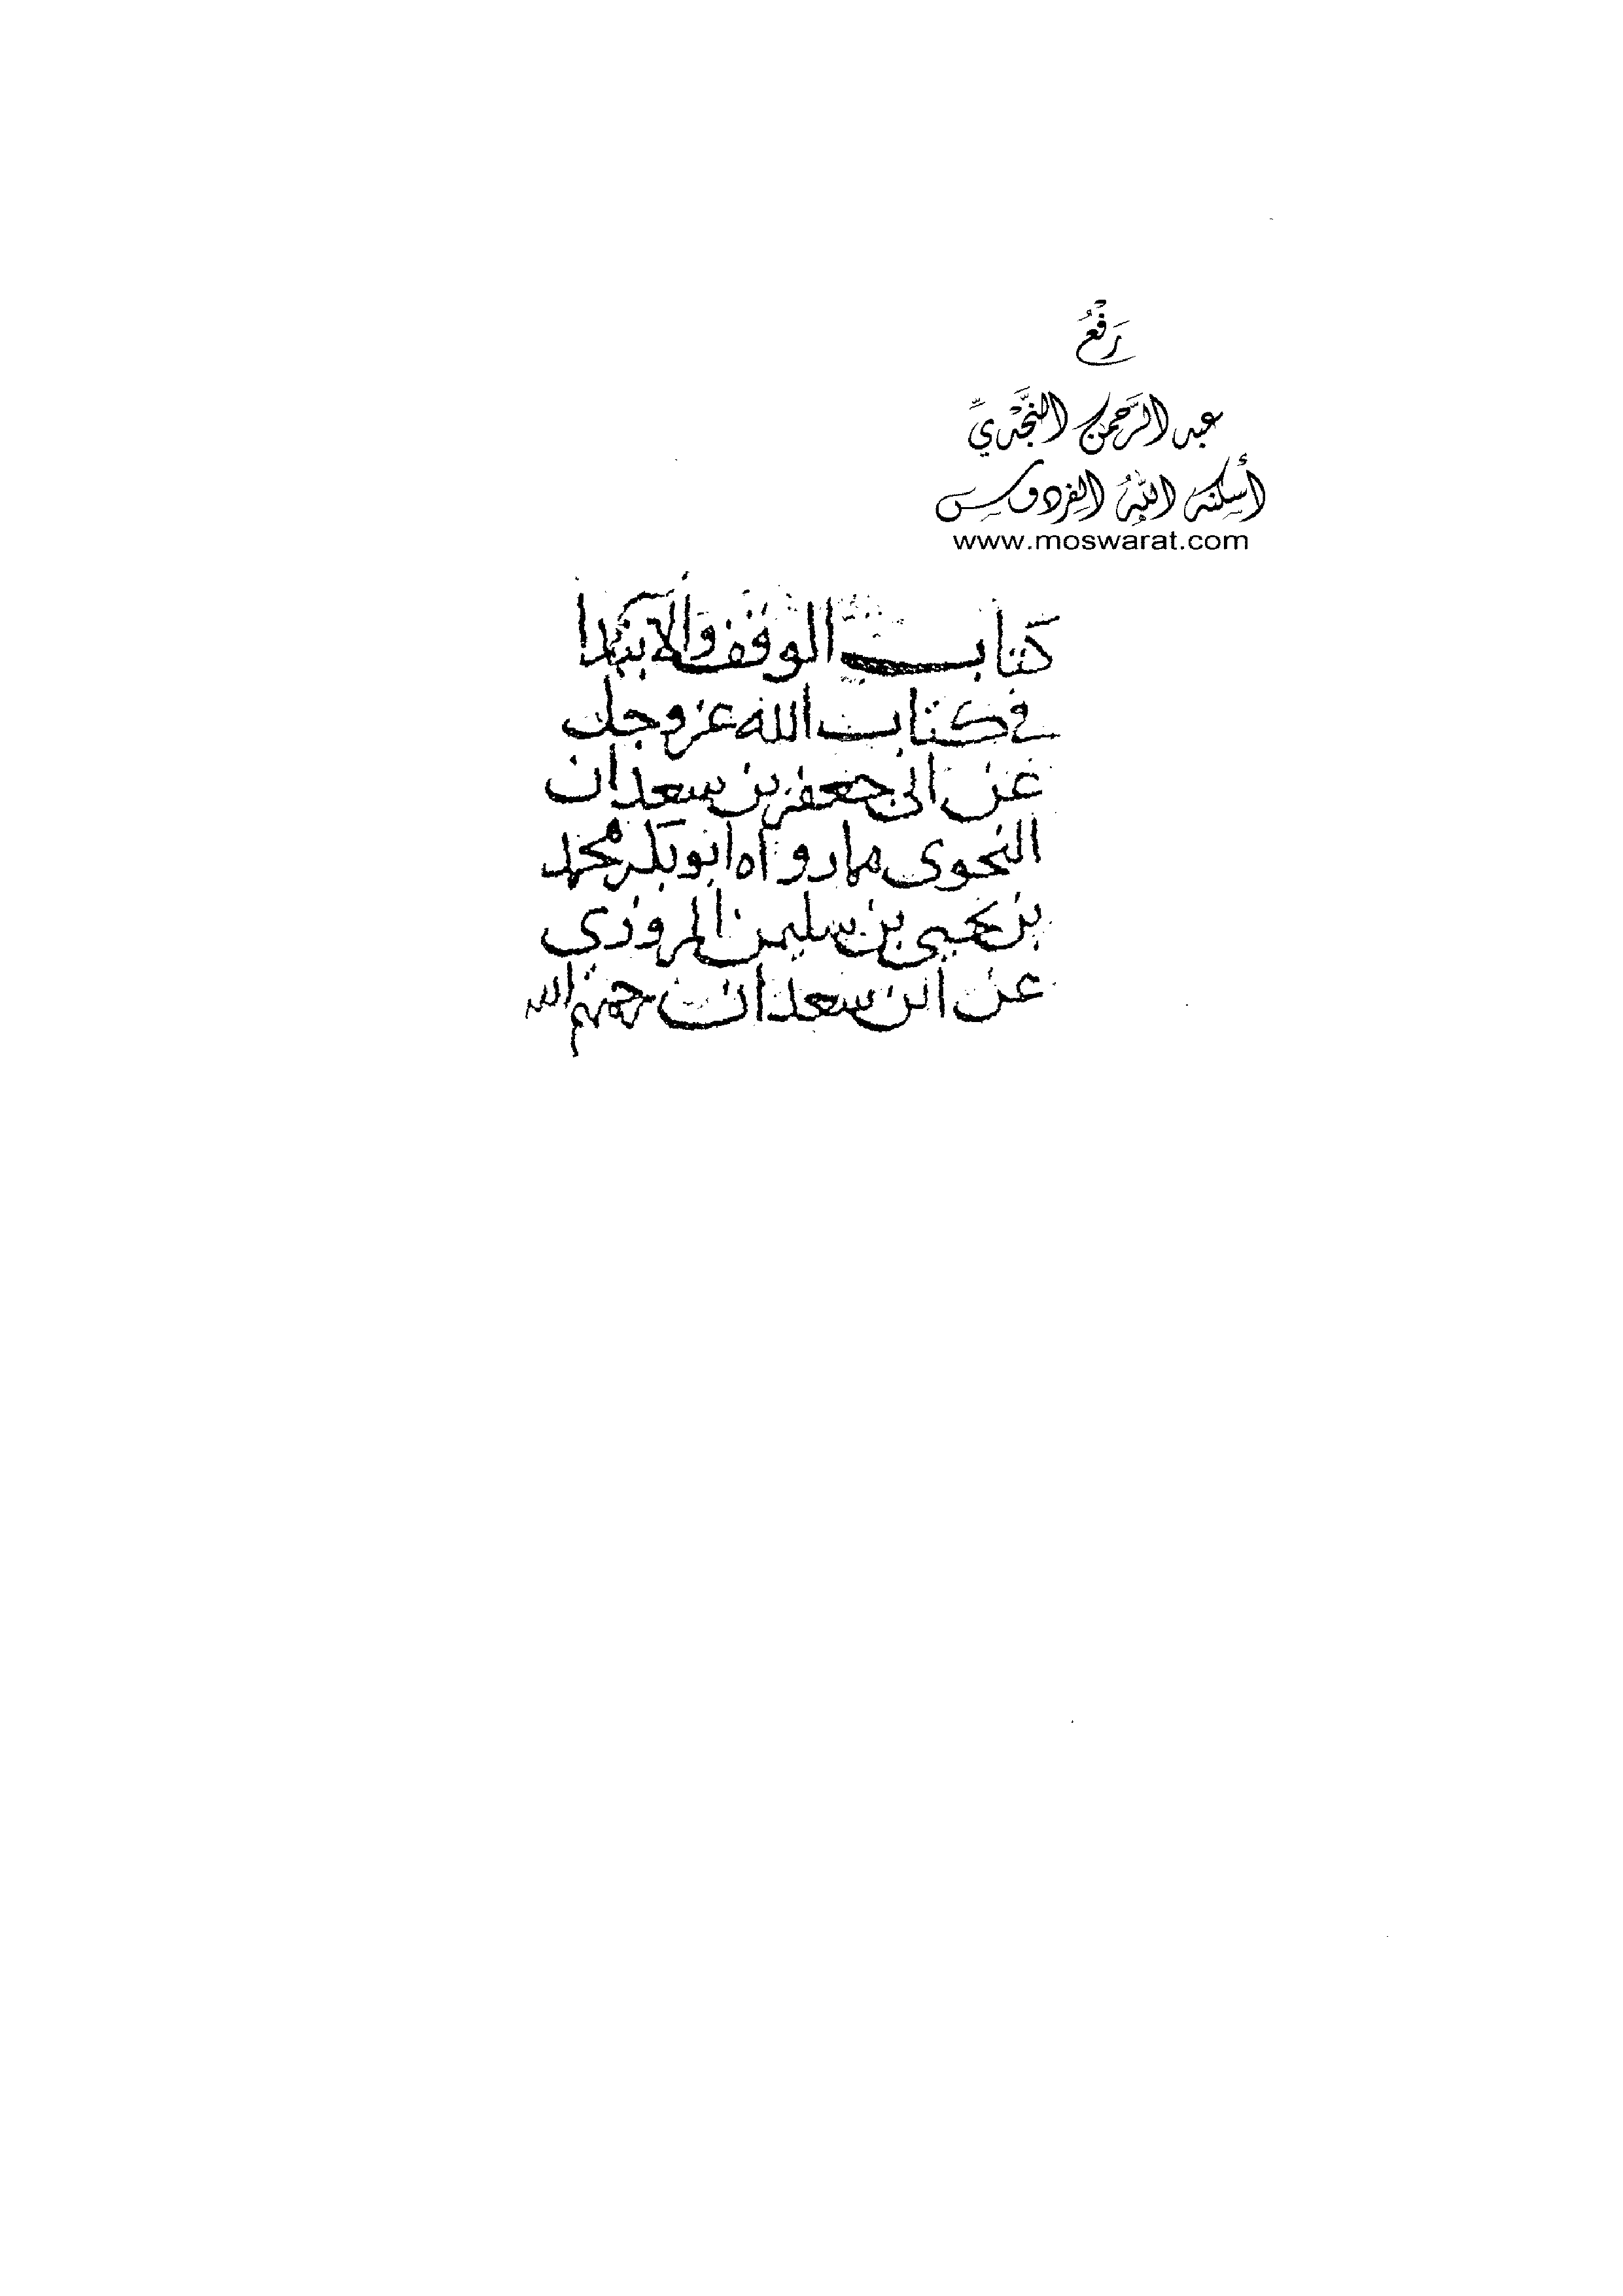 رَفْعُ
عبد الرَّحمن النَّجْدِيِّ
أسكنه اللهُ الفردوس
www.moswarat.com
كتاب الوقف والابتدا
في كتاب الله عز وجل
عن ابى جعفر بن سعدان
النحوى مما رواه ابو بكر محمد
بن يحيى بن سليمن المروزى
عن ابن سعدان رحمهم الله